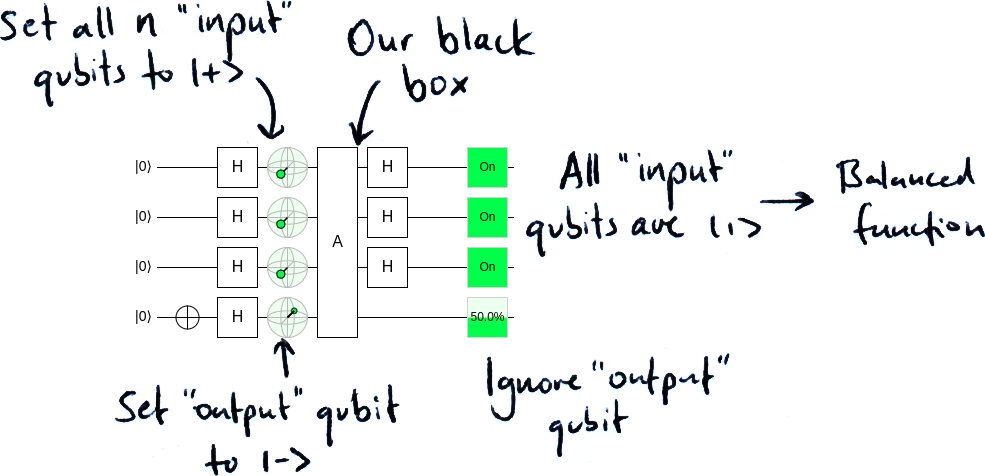 Set all n "input"
qubits to |+>
Our black
box
|0⟩ H A H On
|0⟩ H H On
|0⟩ H H On
|0⟩ H 50.0%
All "input"
qubits are |1>
Balanced
function
Set "output" qubit
to |->
Ignore "output"
qubit